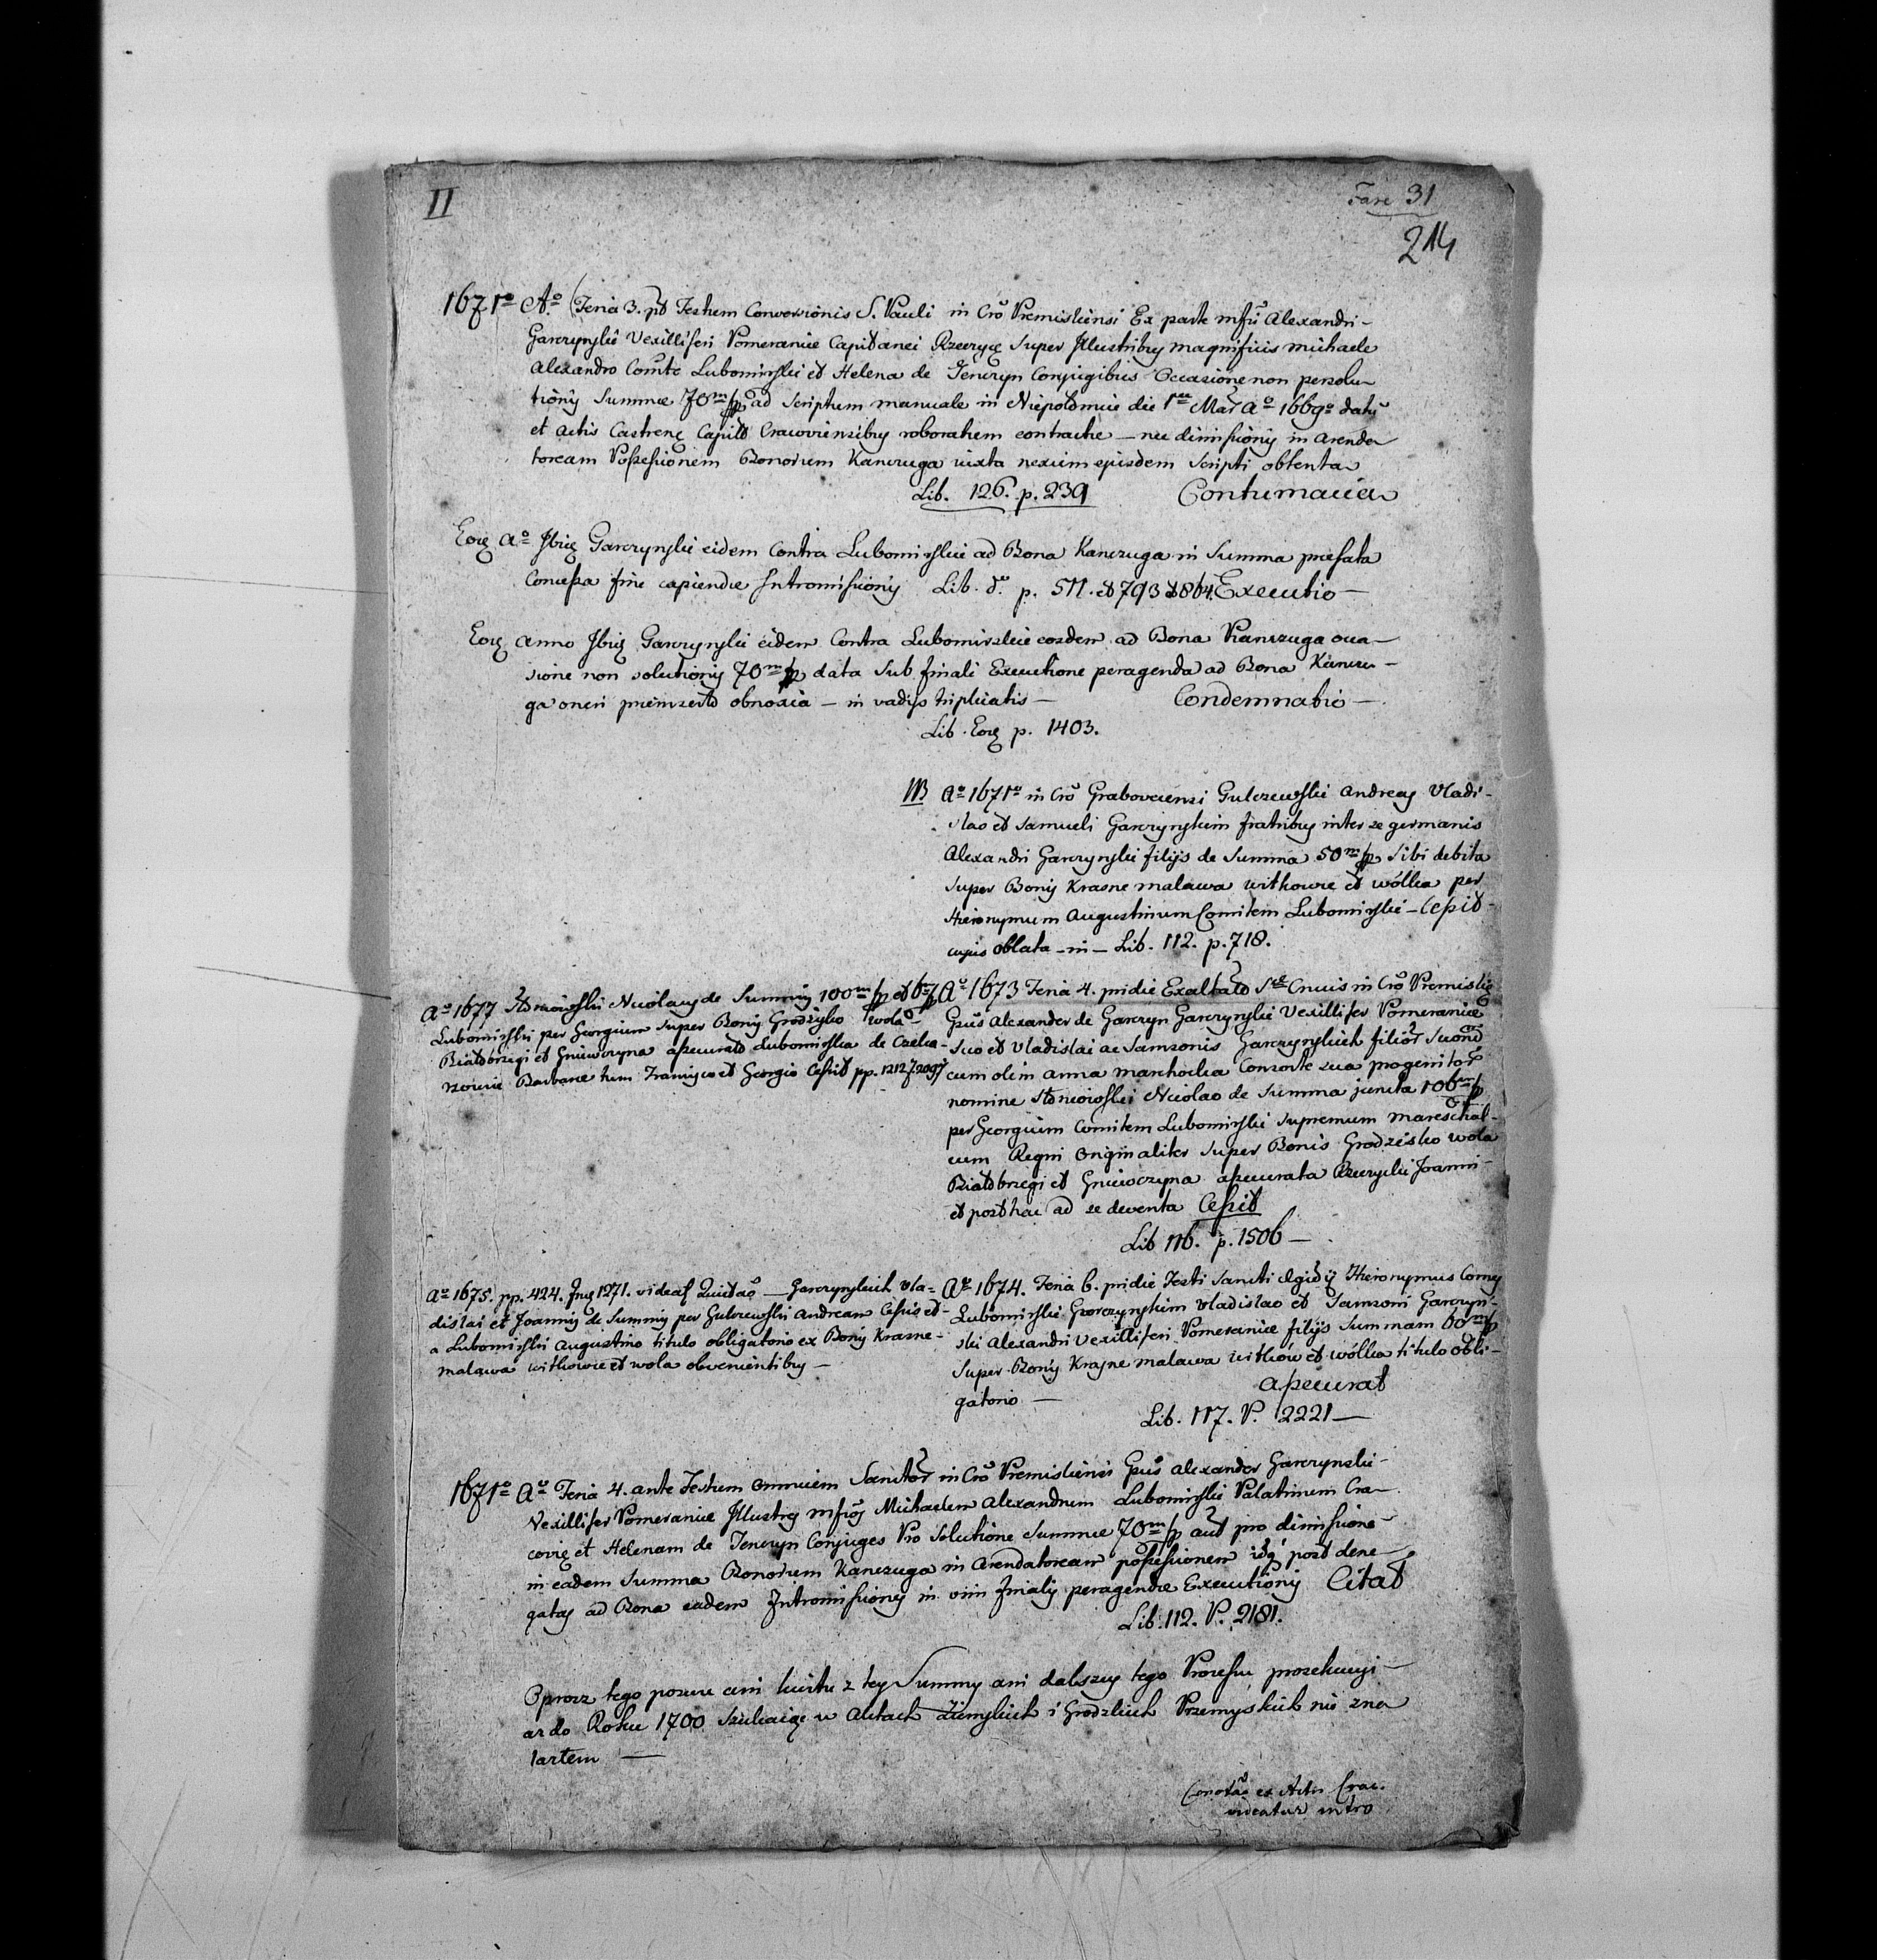 II
Fasc 31
214
1671º Aº Feria 3. pt Festum Conversionis S. Pauli in Crō Premisliensi Ex parte mfci Alexandri
Garczynski Vexilliferi Pomeraniae Capitanei Rzeczyc Super Illustribus magnificis michaele
Alexandro Comite Lubomirski et Helena de Tenczyn Conjugibus Occasione non persolu
tionis Summae 70m fp ad Scriptum manuale in Niepolomice die 1ma Mar Aº 1669º datū
et Actis Castren Capit Cracoviensibus roboratum contractae — nec dimissionis in arenda
toream Possessionem Bonorum Kanczuga iuxta nexum ejusdem Scripti obtenta
Lib. 126. p. 239 Contumacia
Eoq Aº Ibiq Garczynski eidem Contra Lubomirskie ad Bona Kanczuga in Summa praefata
Concessa fine capiendae Intromissionis Lib. d. p. 511. et 793 et 864. Executio —
Eoq Anno Ibiq Garczynski eidem Contra Lubomirskie eosdem ad Bona Kanczuga occa
sione non solutionis 70m fp data Sub finali Executione peragenda ad Bona Kanczu
ga oneri praemisso obnoxia — in vadiis triplicatis — Condemnatio —
Lib. Eoq p. 1403.
NB Aº 1671º in Crō Grabovecensi Gulczewski Andreas Vladi
slao et Samueli Garczynskim fratribus inter se germanis
Alexandri Garczynski filijs de Summa 50m fp Sibi debita
Super Bonis Krasne malawa withowie et wólka per
Hieronymum Augustinum Comitem Lubomirski — Cepit
cujus oblata — in — Lib. 112. p. 718.
Aº 1677 Nicolaus de Summis 100m fp et 6m fp
Lubomirski per Georgium Super Bonis Grodzisko wola
Białobrzegi et Gniewczyna assecurat Lubomirska de
Barbara tum Francisco et Georgio Cessit pp. 1212 2097
Aº 1673 Feria 4. pridie Exaltat Stae Crucis in Crō Premisli
Gnus Alexander de Garczyn Garczynski Vexillifer Pomeraniae
Suo et Vladislai ac Samsonis Garczynskich filior Suor
cum olim Anna Consorte sua progenitor
nomine Nicolao de Summa juncta 106m fp
per Georgium Comitem Lubomirski Supremum Mareschal
cum Regni Originaliter Super Bonis Grodzisko wola
Białobrzegi et Gniewczyna assecurata Rzeczycki Joanni
et post hac ad se deventa Cessit
Lib 116. p. 1506 —
Aº 1675. pp. 424. Inq 1271. videas Quietao — Garczynskich Vla
dislai et Joannis de Summis per Gulczewski Andream Cessis et
a Lubomirski Augustino titulo obligatorio ex Bonis Krasne
malawa withowie et wola obvenientibus —
Aº 1674. Feria 6. pridie Festi Sancti Egidij Hieronymus Comes
Lubomirski Garczynskim Vladislao et Samsoni Garczyn
ski Alexandri Vexilliferi Pomeraniae filijs Summam 60m fp
Super Bonis Krasne malawa witków et wólka titulo obli
gatorio — assecurat
Lib. 117. P. 2221 —
1671º Aº Feria 4. ante Festum Omnium Sanctor in Crō Premisliensi Gnus Alexander Garczynski
Vexillifer Pomeraniae Illustres mfcos Michaelem Alexandrum Lubomirski Palatinum Cra
coviae et Helenam de Tenczyn Conjuges Pro Solutione Summae 70m fp aut pro dimissione
in eadem Summa Bonorum Kanczuga in Arendatoream possessionem idq post dene
gatas ad Bona eadem Intromissionis in vim finalis peragendae Executionis Citat
Lib. 112. P. 2181.
Oprocz tego pozwu ani kwitu z tey Summy ani dalszey tego Processu prozekucyi
az do Roku 1700 Szukaiąc w Aktach Ziemskich i Grodzkich Przemyskich nie zna
lazłem —
Conotao ex Actis Crac.
videatur intro